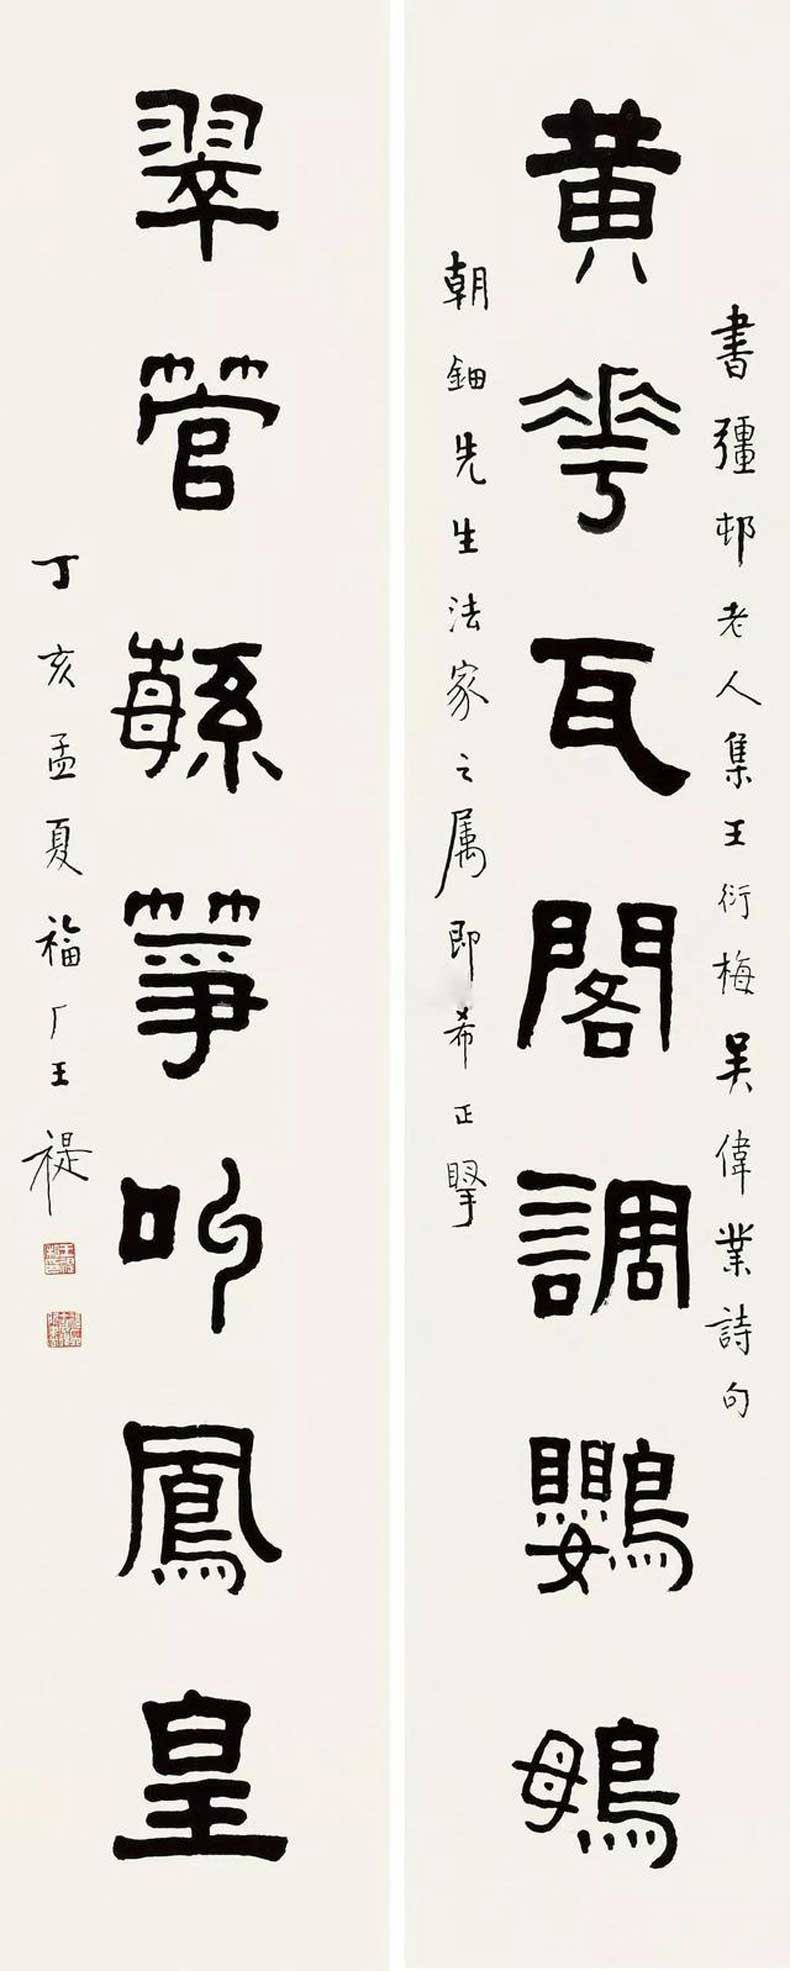 書彊邨老人集王衍梅吳偉業詩句
黃華瓦閣調鸚䳇
朝鈿先生法家之属即希正掔
翠管緐箏叫鳳皇
丁亥孟夏福厂王禔